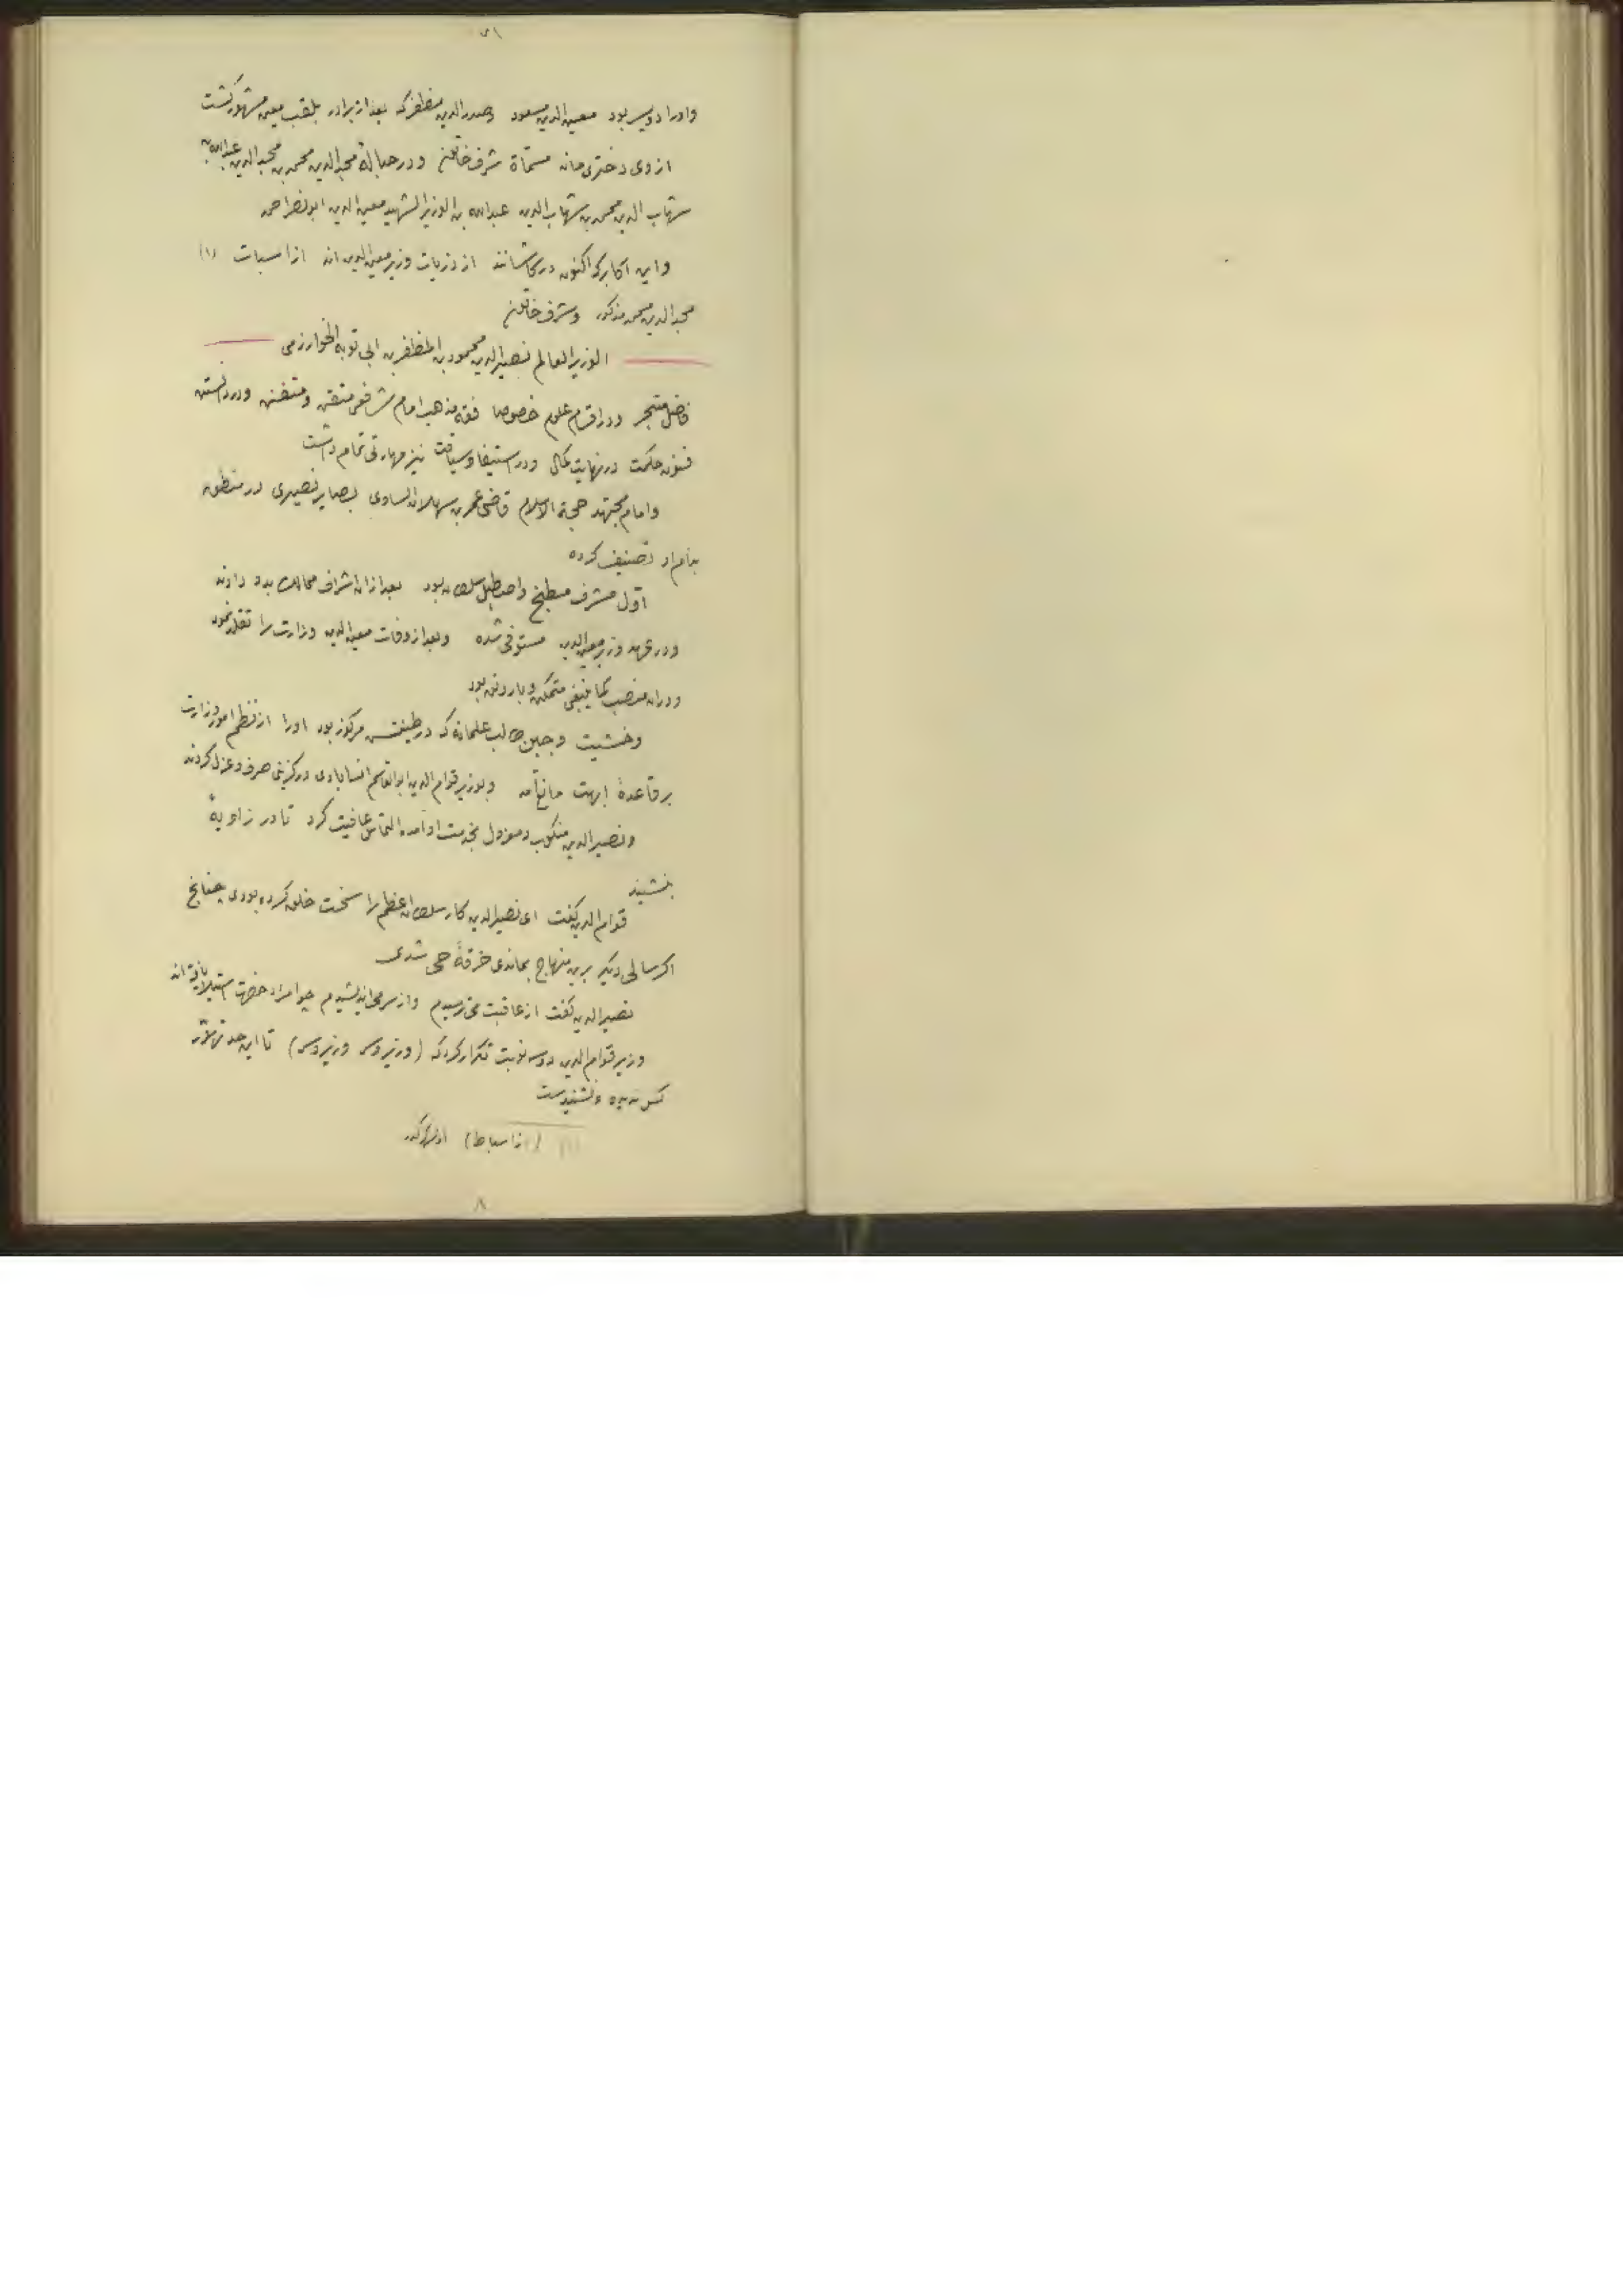 واورا دو پسر بود معین‌الدین مسعود وصدرالدین مظفر که بعد از برادر بلقب معین مشهور گشت
از وی دختری ماند مسمّاة شرف خاتون ودر حبالهٔ مجدالدین محمد بن مجدالدین عبدالله بن
شهاب الدین محمد بن شهاب الدین عبدالله بن الوزیر الشهید معین الدین ابونصر احمد
واین اکابر که اکنون در کاشانند از ذریات وزیر معین‌الدین اند از اسبات (۱)
مجدالدین محمد مذکور وشرف خاتون
الوزیر العالم نصیرالدین محمود بن المظفر بن ابی توبه الخوارزمی
فاضل متبحر ودر اقسام علوم خصوصا فقه مذهب امام شافعی متقن ومتفنن ودر دانستن
فنون حکمت در نهایت کمال ودر استیفا وسیاقت نیز مهارتی تمام داشت
وامام مجتهد حجة الاسلام قاضی عمر بن سهلان الساوی بصایر نصیری در منطق
بنام او تصنیف کرده
اول مشرف مطبخ واصطبل سلطان بود بعد از ان اشراف ممالک بدو دادند
ودر عهد وزیر معین‌الدین مستوفی شده وبعد از وفات معین‌الدین وزارت را تقلد نمود
ودران منصب کما ینبغی متمکن وبا رونق بود
وخشیت وجبن طالب علمانه که در طینتش مرکوز بود اورا از نظم امور وزارت
بر قاعدهٔ ابهت مانع آمد وبوزیر قوام الدین ابوالقاسم انساباذی درگزینی صرف وعزل کردند
ونصیرالدین منکوب ومعزول بخدمت او آمده التماس عافیت کرد تا در زاویهٔ
بنشیند
قوام الدین گفت ای نصیرالدین کار سلطان اعظم را سخت خلق کرده بودی چنانچ
اگر سالی دیگر برین منهاج بماندی خرقهٔ حی شدی
نصیرالدین گفت از عاقبت می ترسیدم واز سر می اندیشیدم چو امراء حضرت استیلا یافته اند
وزیر قوام‌الدین دو سه نوبت تکرار کرد که (وزیر وس وزیر وس) تا این حد
کس ندیده ونشنیدست
(از اسباط)
۸